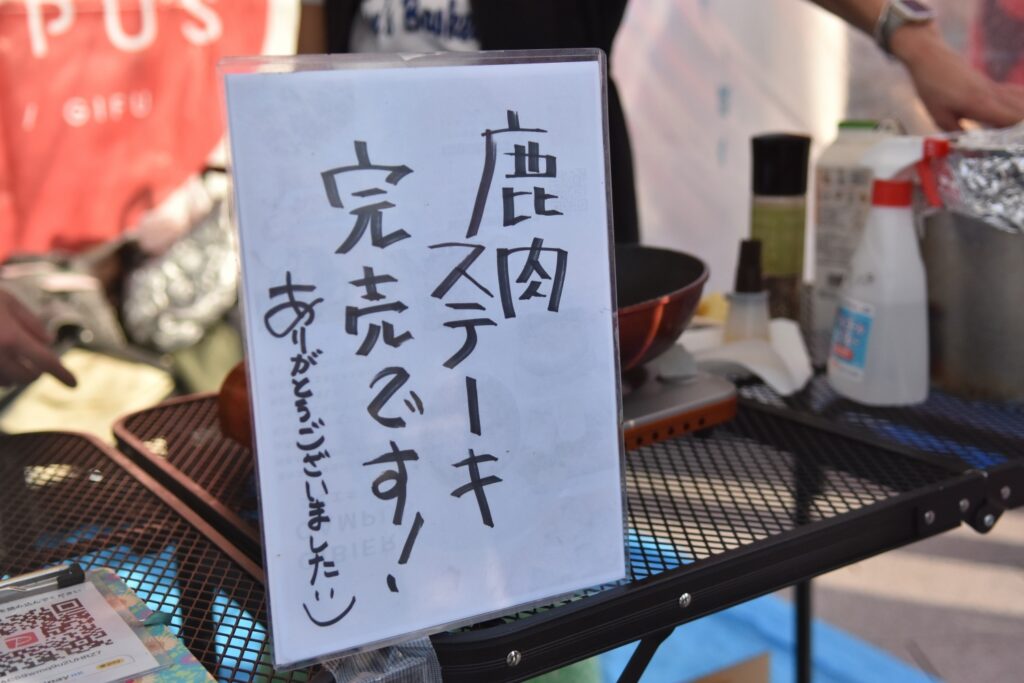 鹿肉
ステーキ
完売です！
ありがとうございました:)
PUS
/ GIFU